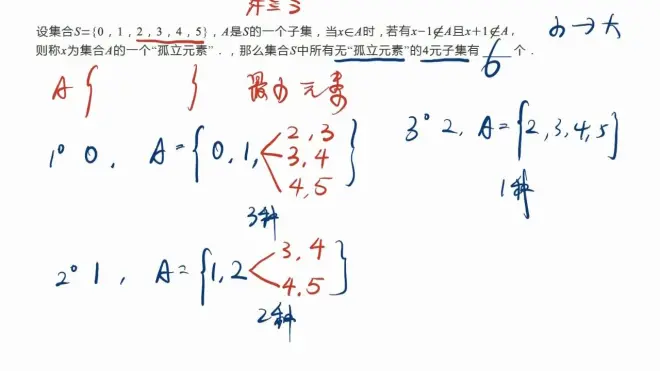 设集合S={0，1，2，3，4，5}，A是S的一个子集，当x∈A时，若有x−1∉A且x+1∉A，
则称x为集合A的一个“孤立元素”．，那么集合S中所有无“孤立元素”的4元子集有 6 个．
小→大
A { } 最小元素
1° 0， A={0,1,
2,3
3,4
4,5}
3种
3° 2, A={2,3,4,5}
1种
2° 1, A={1,2
3,4
4,5}
2种